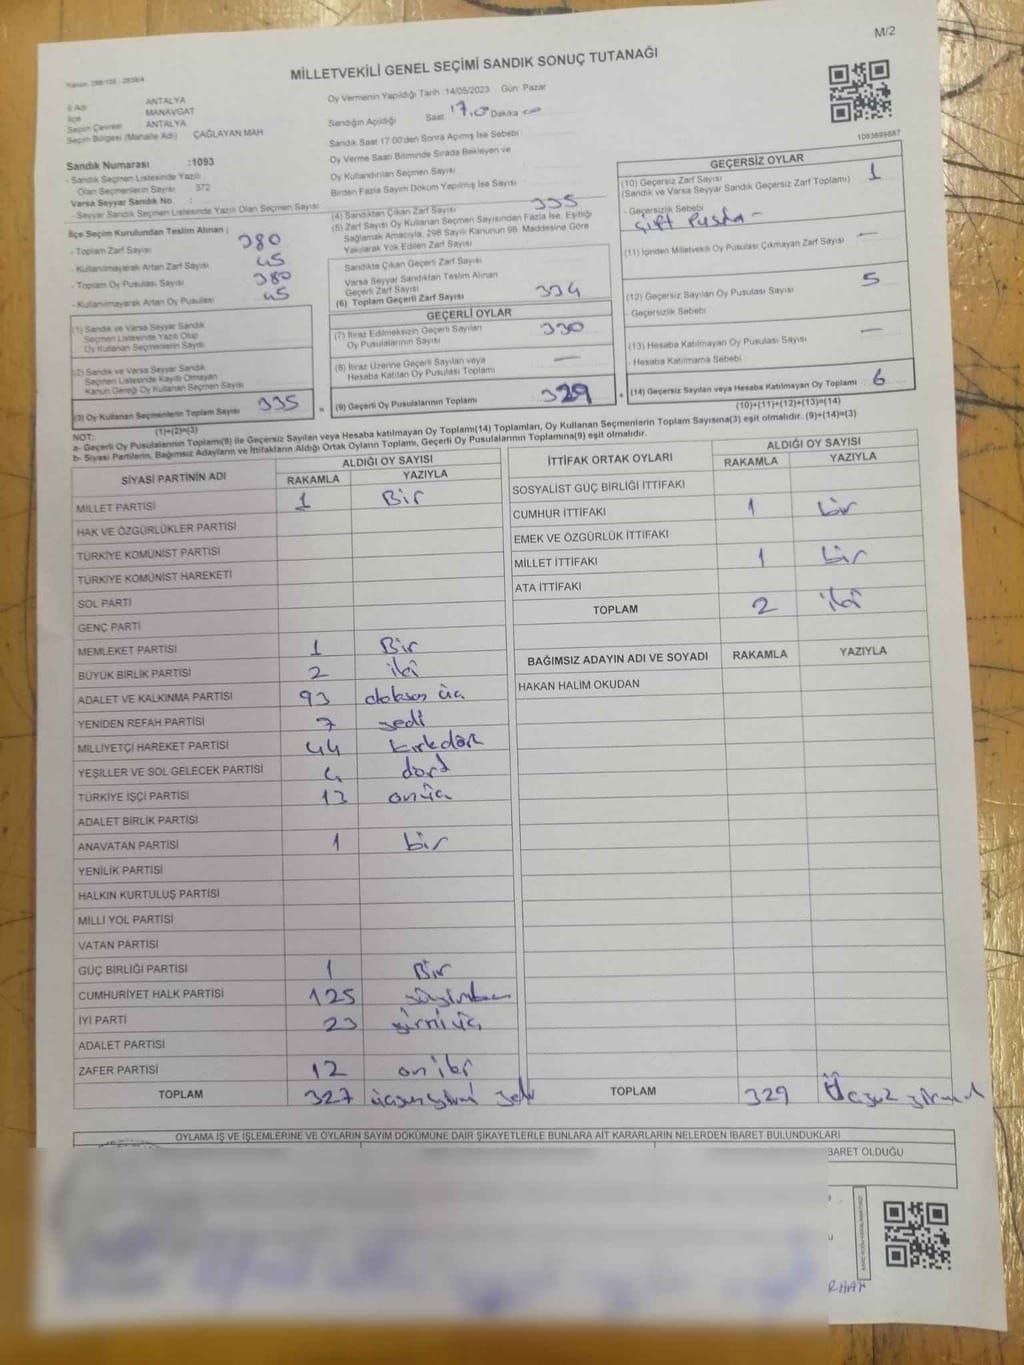 M/2
Kanun: 298/105 , 2839/4
MİLLETVEKİLİ GENEL SEÇİMİ SANDIK SONUÇ TUTANAĞI
İl Adı ANTALYA
İlçe MANAVGAT
Seçim Çevresi ANTALYA
Seçim Bölgesi (Mahalle Adı) ÇAĞLAYAN MAH
Sandık Numarası :1093
- Sandık Seçmen Listesinde Yazılı
Olan Seçmenlerin Sayısı 372
Varsa Seyyar Sandık No :
- Seyyar Sandık Seçmen Listesinde Yazılı Olan Seçmen Sayısı
İlçe Seçim Kurulundan Teslim Alınan ;
- Toplam Zarf Sayısı 380
- Kullanılmayarak Artan Zarf Sayısı 45
- Toplam Oy Pusulası Sayısı 380
- Kullanılmayarak Artan Oy Pusulası 45
(1) Sandık ve Varsa Seyyar Sandık
Seçmen Listesinde Yazılı Olup
Oy Kullanan Seçmenlerin Sayısı
(2) Sandık ve Varsa Seyyar Sandık
Seçmen Listesinde Kayıtlı Olmayan
Kanun Gereği Oy Kullanan Seçmen Sayısı
(3) Oy Kullanan Seçmenlerin Toplam Sayısı 335
(1)+(2)=(3)
Oy Vermenin Yapıldığı Tarih :14/05/2023 Gün: Pazar
Sandığın Açıldığı Saat 17.0 Dakika 00
Sandık Saat 17:00'den Sonra Açılmış İse Sebebi
Oy Verme Saati Bitiminde Sırada Bekleyen ve
Oy Kullandırılan Seçmen Sayısı
Birden Fazla Sayım Döküm Yapılmış İse Sayısı
(4) Sandıktan Çıkan Zarf Sayısı 335
(5) Zarf Sayısı Oy Kullanan Seçmen Sayısından Fazla İse, Eşitliği
Sağlamak Amacıyla, 298 Sayılı Kanunun 98. Maddesine Göre
Yakılarak Yok Edilen Zarf Sayısı
Sandıkta Çıkan Geçerli Zarf Sayısı
Varsa Seyyar Sandıktan Teslim Alınan
Geçerli Zarf Sayısı
(6) Toplam Geçerli Zarf Sayısı 334
GEÇERLİ OYLAR
(7) İtiraz Edilmeksizin Geçerli Sayılan
Oy Pusulalarının Sayısı 330
(8) İtiraz Üzerine Geçerli Sayılan veya
Hesaba Katılan Oy Pusulası Toplamı —
= (9) Geçerli Oy Pusulalarının Toplamı 329
1083699887
GEÇERSİZ OYLAR
(10) Geçersiz Zarf Sayısı
(Sandık ve Varsa Seyyar Sandık Geçersiz Zarf Toplamı) 1
- Geçersizlik Sebebi
Çift Pusla -
(11) İçinden Milletvekili Oy Pusulası Çıkmayan Zarf Sayısı —
(12) Geçersiz Sayılan Oy Pusulası Sayısı 5
- Geçersizlik Sebebi
(13) Hesaba Katılmayan Oy Pusulası Sayısı —
- Hesaba Katılmama Sebebi
+ (14) Geçersiz Sayılan veya Hesaba Katılmayan Oy Toplamı 6
(10)+(11)+(12)+(13)=(14)
NOT:
a- Geçerli Oy Pusulalarının Toplamı(9) ile Geçersiz Sayılan veya Hesaba katılmayan Oy Toplamı(14) Toplamları, Oy Kullanan Seçmenlerin Toplam Sayısına(3) eşit olmalıdır. (9)+(14)=(3)
b- Siyasi Partilerin, Bağımsız Adayların ve İttifakların Aldığı Ortak Oyların Toplamı, Geçerli Oy Pusulalarının Toplamına(9) eşit olmalıdır.
SİYASİ PARTİNİN ADI ALDIĞI OY SAYISI
RAKAMLA YAZIYLA
MİLLET PARTİSİ 1 Bir
HAK VE ÖZGÜRLÜKLER PARTİSİ
TÜRKİYE KOMÜNİST PARTİSİ
TÜRKİYE KOMÜNİST HAREKETİ
SOL PARTİ
GENÇ PARTİ
MEMLEKET PARTİSİ 1 Bir
BÜYÜK BİRLİK PARTİSİ 2 iki
ADALET VE KALKINMA PARTİSİ 93 doksan üç
YENİDEN REFAH PARTİSİ 7 yedi
MİLLİYETÇİ HAREKET PARTİSİ 44 kırkdört
YEŞİLLER VE SOL GELECEK PARTİSİ 4 dört
TÜRKİYE İŞÇİ PARTİSİ 13 onüç
ADALET BİRLİK PARTİSİ
ANAVATAN PARTİSİ 1 bir
YENİLİK PARTİSİ
HALKIN KURTULUŞ PARTİSİ
MİLLİ YOL PARTİSİ
VATAN PARTİSİ
GÜÇ BİRLİĞİ PARTİSİ 1 Bir
CUMHURİYET HALK PARTİSİ 125
İYİ PARTİ 23 yirmi üç
ADALET PARTİSİ
ZAFER PARTİSİ 12 oniki
TOPLAM 327
İTTİFAK ORTAK OYLARI ALDIĞI OY SAYISI
RAKAMLA YAZIYLA
SOSYALİST GÜÇ BİRLİĞİ İTTİFAKI
CUMHUR İTTİFAKI 1 bir
EMEK VE ÖZGÜRLÜK İTTİFAKI
MİLLET İTTİFAKI 1 bir
ATA İTTİFAKI
TOPLAM 2 iki
BAĞIMSIZ ADAYIN ADI VE SOYADI RAKAMLA YAZIYLA
HAKAN HALİM OKUDAN
TOPLAM 329
OYLAMA İŞ VE İŞLEMLERİNE VE OYLARIN SAYIM DÖKÜMÜNE DAİR ŞİKAYETLERLE BUNLARA AİT KARARLARIN NELERDEN İBARET BULUNDUKLARI
BARET OLDUĞU